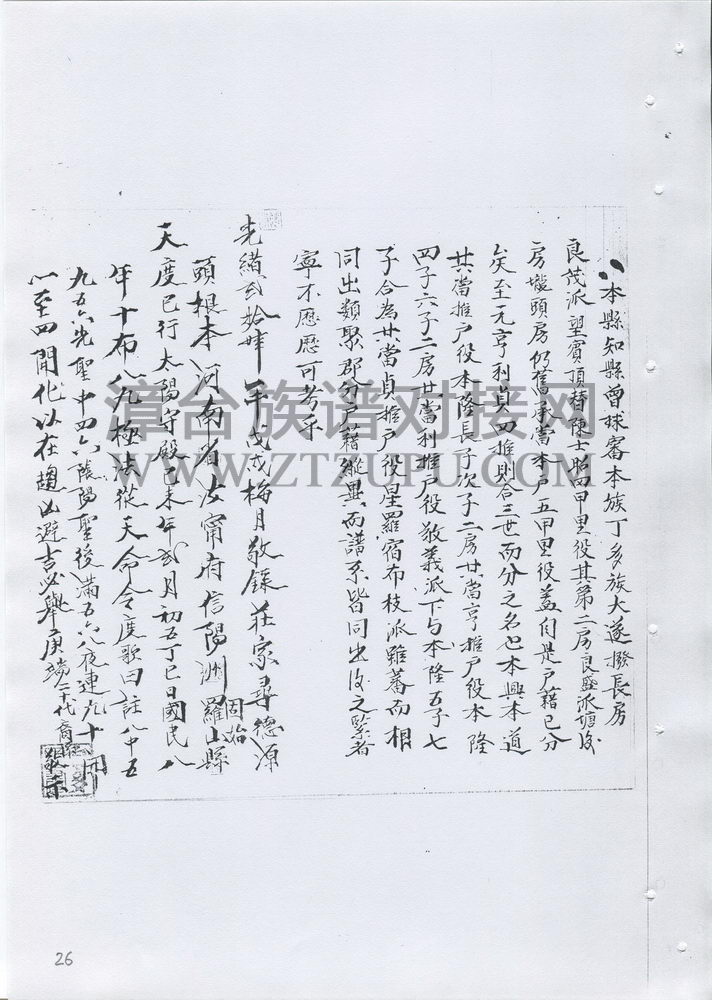 本縣知縣曾球審本族丁多族大遂撥長房
良茂派望賓頂替陳士昭四甲里役其第二房良盛派塘後
房壠頭房仍舊承當本戶五甲里役蓋自是戶籍已分
矣至一元亨利貞四推則合三世而分之名也本興本道
共當推戶役本隆長子次子二房共當亨推戶役本隆
四子六子二房共當利推戶役敬義派下与本隆五子七
子合為共當貞推戶役星羅宿布枝派雖蕃而相
同出類聚郡分戶籍縱異而譜系皆同出後之繫者
寧不歷歷可考乎
光緒貳拾肆年戊戌梅月敬錄莊家尋德源
頭根本河南省汝甯府信陽洲羅山縣
固始
天度已行太陽守殿己未年弍月初五丁巳日國民八
年十布八九極法從天命令度歌曰註八中五
九五六先聖中四六陰陽聖後滿五六八夜連九十
心至四開化以在趨凶避吉必舉庚端二十代裔
漳台族谱对接网
WWW.ZTZUPU.COM
26